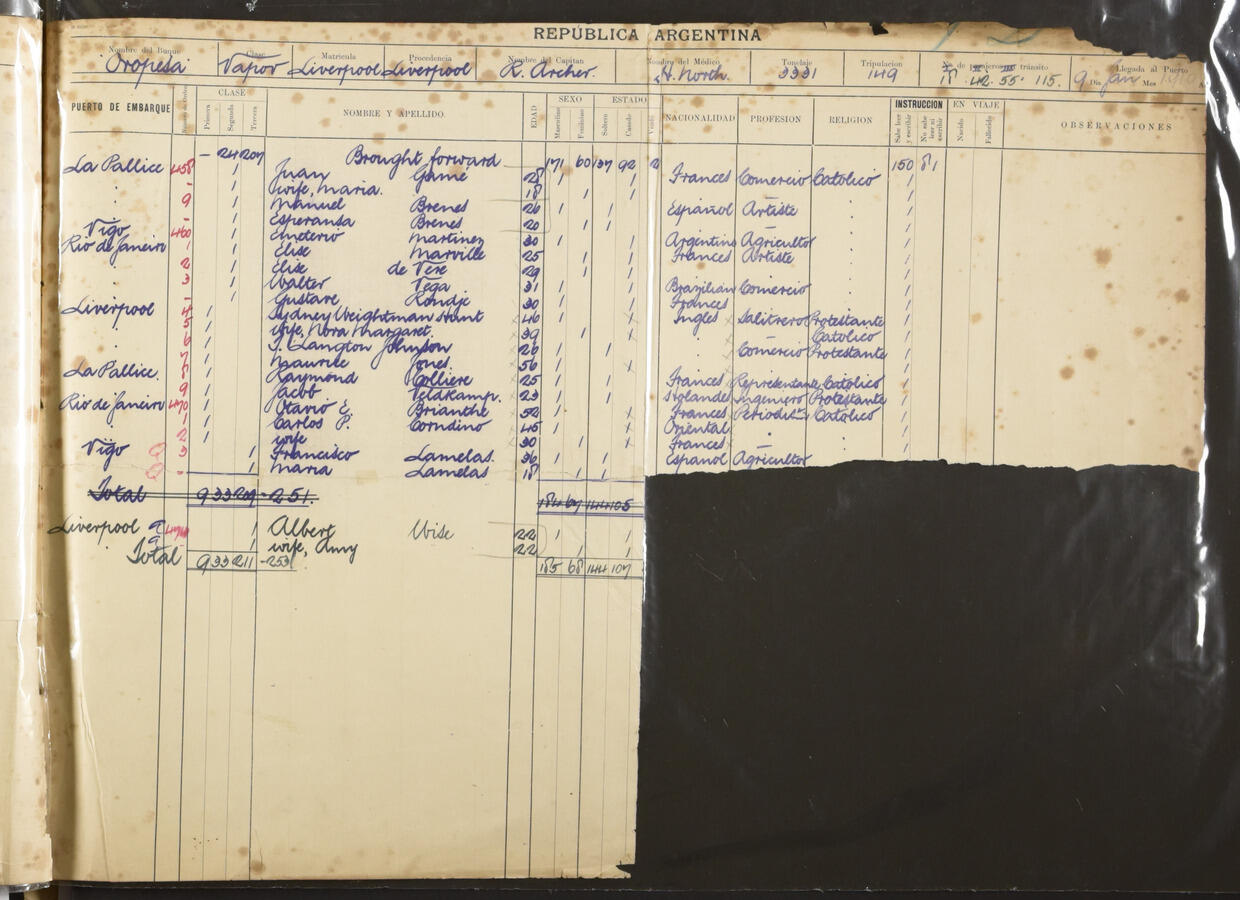 REPÚBLICA ARGENTINA
Nombre del Buque Clase Matricula Procedencia Nombre del Capitan Nombre del Médico Tonelaje Tripulacion de pasajeros tránsito Llegada al Puerto
Oropesa Vapor Liverpool Liverpool R. Archer. H. North. 3331 149 18 42. 55. 115. 9 Dia Jan Mes
PUERTO DE EMBARQUE CLASE Primera Segunda Tercera NOMBRE Y APELLIDO. EDAD SEXO Masculino Femenino ESTADO Soltero Casado Viudo NACIONALIDAD PROFESION RELIGION INSTRUCCION Sabe leer y escribir No sabe leer ni escribir EN VIAJE Nacido Fallecido OBSERVACIONES
– 24 207 Brought forward 171 60 137 92 2 150 81
La Pallice 458 1 Juan Gamé 28 1 1 Frances Comercio Catolico 1
. - 1 wife, Maria. 18 1 1 . 1
. 9 1 Manuel Brenes 26 1 1 Español Artiste . 1
. - 1 Esperansa Brenes 20 1 1 . — . 1
Vigo 460 1 Emeterio Martinez 30 1 1 Argentino Agricultor . 1
Rio de Janeiro 1 1 Elise Marville 25 1 1 Frances Artiste . 1
. 2 1 Elise de Vere 29 1 1 . . . 1
. 3 1 Walter Vega 31 1 1 Brazilian Comercio . 1
. - 1 Gustave 30 1 1 Frances . . 1
Liverpool 4 1 Sydney Weightman Hunt 46 1 1 Ingles Salitrero Protestante 1
. 5 1 wife, Nora Margaret. 39 1 1 . — Catolico 1
. 6 1 T. Langton Johnson 26 1 1 . Comercio Protestante 1
. 7 1 Maurice Jones 56 1 1 . . . 1
La Pallice. 8 1 Raymond Colliere 25 1 1 Frances Representante Catolico 1
. 9 1 Jacob Veldkamp. 23 1 1 Holandes Ingeniero Protestante 1
Rio de Janeiro 470 1 Otavio E. Brianthe 52 1 1 Frances Catolico 1
. 1 1 Carlos P. Corndino 45 1 1 Oriental . . 1
. 2 1 wife 30 1 1 Frances . . 1
Vigo 3 1 Francisco Lamelas. 36 1 1 Español Agricultor
. - 1 Maria Lamelas 18 1 1
Total 9 33 209 - 251. 184 67 144 105
Liverpool 474 1 Albert Wise 22 1 1
1 wife, Amy 22 1 1
Total 9 33 211 - 253 185 68 144 107